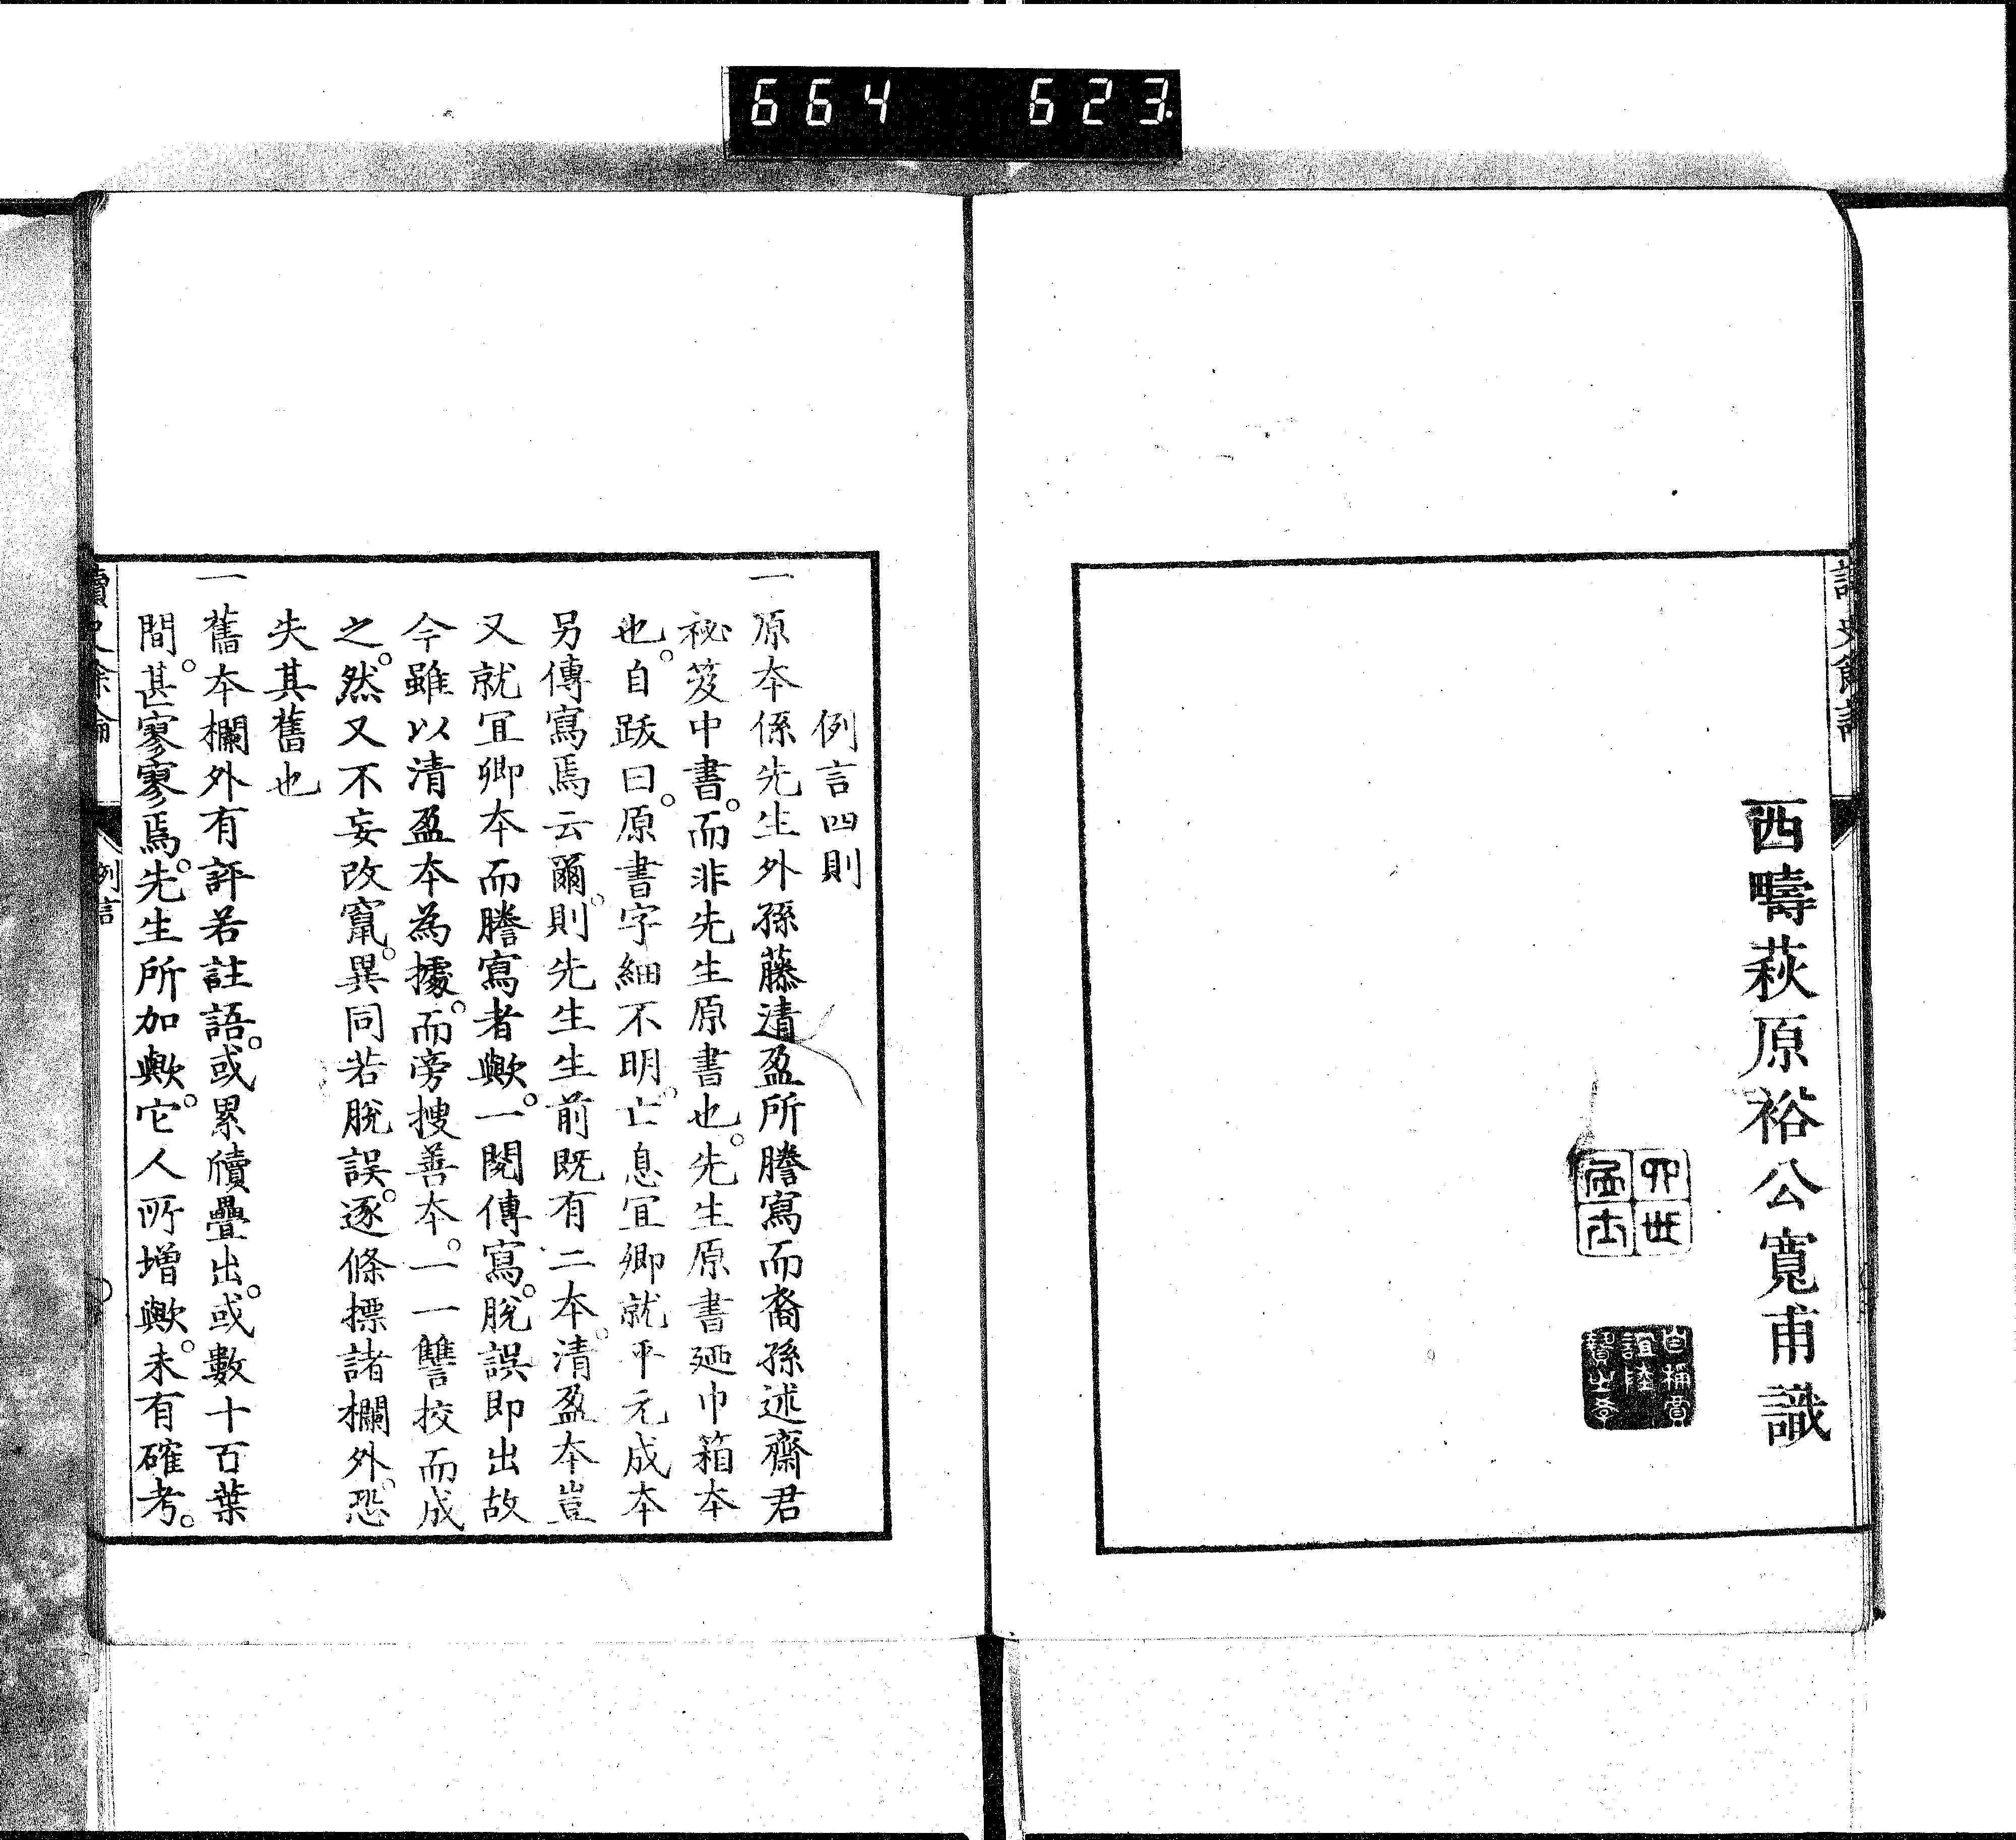 664 623
西疇萩原裕公寬甫識
例言四則
一原本係先生外孫藤清盈所謄寫而裔孫述齋君
祕笈中書。而非先生原書也。先生原書迺巾箱本
也。自跋曰。原書字細不明。亡息宜卿就平元成本
另傳寫焉云爾。則先生生前既有二本。清盈本豈
又就宜卿本而謄寫者歟。一閱傳寫。脫誤即出故
今雖以清盈本為據。而旁搜善本。一一讐挍而成
之。然又不妄改竄。異同若脫誤。逐條摽諸欄外。恐
失其舊也
一舊本欄外有評若註語。或累牘疊出。或數十百葉
間。甚寥寥焉。先生所加歟。它人所增歟。未有確考。
讀史餘論 例言